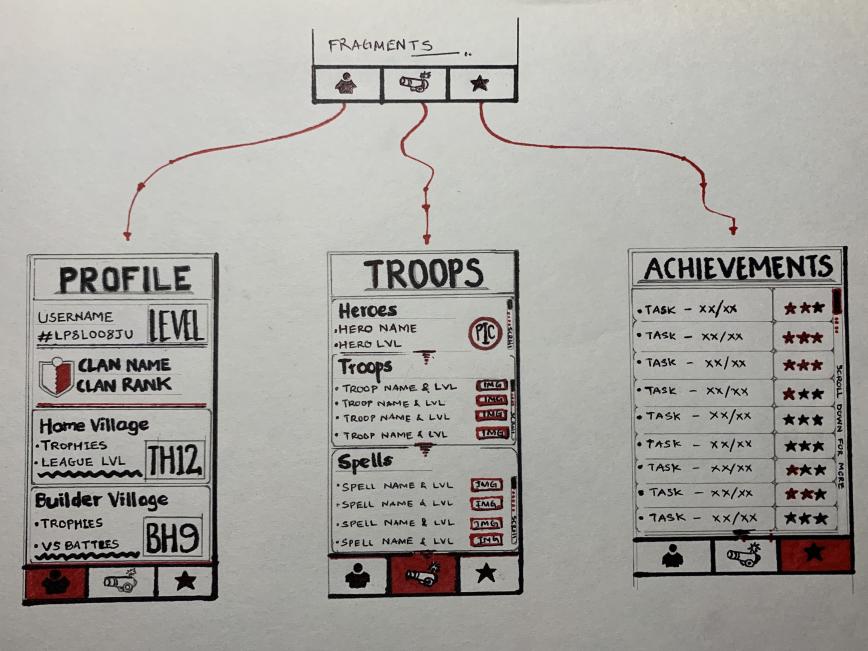 FRAGMENTS
PROFILE
USERNAME
#LP8L008JU
LEVEL
CLAN NAME
CLAN RANK
Home Village
• TROPHIES
• LEAGUE LVL
TH12
Builder Village
• TROPHIES
• VS BATTLES
BH9
TROOPS
Heroes
• HERO NAME
• HERO LVL
PIC
SCROLL
Troops
• TROOP NAME & LVL IMG
• TROOP NAME & LVL IMG
• TROOP NAME & LVL IMG
• TROOP NAME & LVL IMG
SCROLL
Spells
• SPELL NAME & LVL IMG
• SPELL NAME & LVL IMG
• SPELL NAME & LVL IMG
• SPELL NAME & LVL IMG
SCROLL
ACHIEVEMENTS
• TASK - XX/XX
• TASK - XX/XX
• TASK - XX/XX
• TASK - XX/XX
• TASK - XX/XX
• TASK - XX/XX
• TASK - XX/XX
• TASK - XX/XX
• TASK - XX/XX
SCROLL DOWN FOR MORE